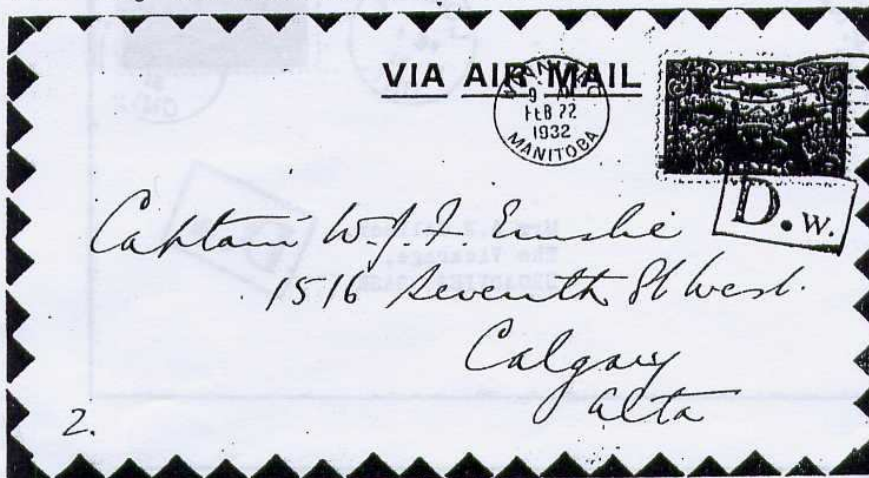 VIA AIR MAIL
9
FEB 22
1932
MANITOBA
D.W.
Captain W.J.F.
1516 Seventh St West.
Calgary
Alta
2.